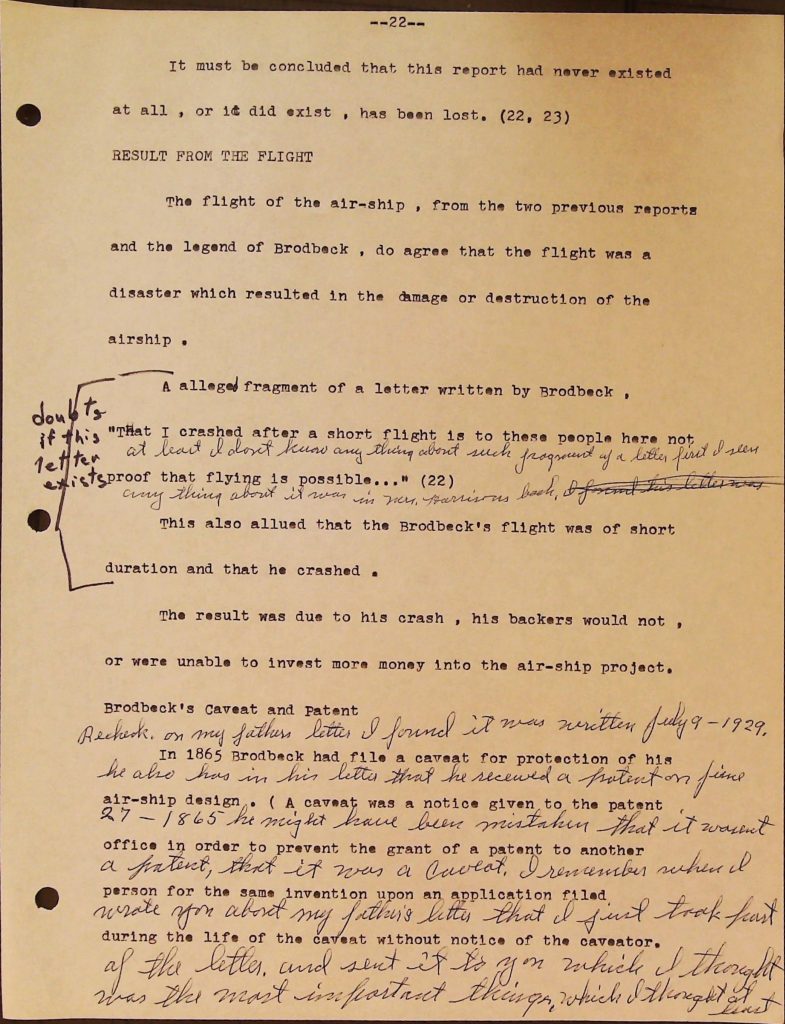 --22--
It must be concluded that this report had never existed
at all , or it did exist , has been lost. (22, 23)
RESULT FROM THE FLIGHT
The flight of the air-ship , from the two previous reports
and the legend of Brodbeck , do agree that the flight was a
disaster which resulted in the damage or destruction of the
airship .
A alleged fragment of a letter written by Brodbeck ,
doubts
if this
letter
exists
"That I crashed after a short flight is to these people here not
at least I dont know any thing about such fragment of a letter first I seen
proof that flying is possible..." (22)
any thing about it was in mrs. Harrisons book. I found this letter was
This also allued that the Brodbeck's flight was of short
duration and that he crashed .
The result was due to his crash , his backers would not ,
or were unable to invest more money into the air-ship project.
Brodbeck's Caveat and Patent
Recheck. on my fathers letter I found it was written July 9-1929.
In 1865 Brodbeck had file a caveat for protection of his
he also has in his letter that he received a patent on June
air-ship design . ( A caveat was a notice given to the patent
27-1865 he might have been mistaken that it wasent
office in order to prevent the grant of a patent to another
a patent, that it was a Caveat. I remember when I
person for the same invention upon an application filed
wrote you about my father's letter that I just took part
during the life of the caveat without notice of the caveator.
of the letter. and sent it to you which I thought
was the most important things, which I thought at
least